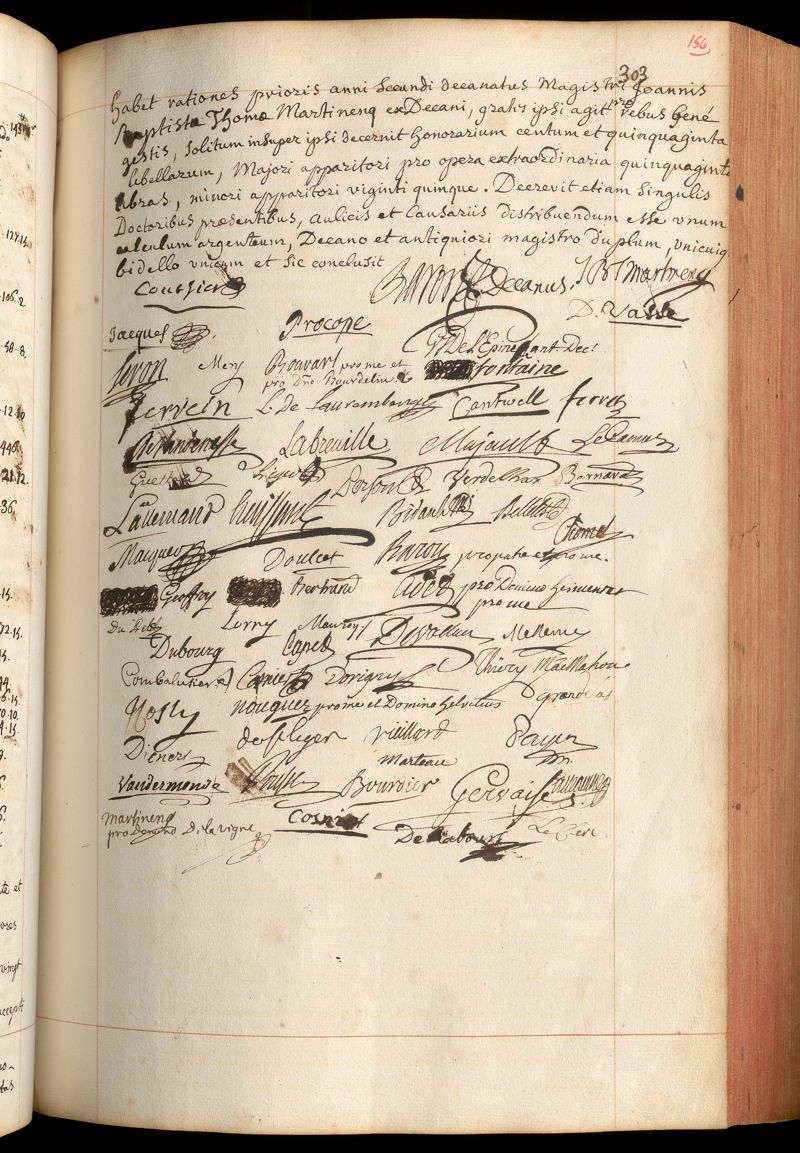 156
303
habet rationes prioris anni secundi decanatus Magistri Joannis
Baptistæ Thomæ Martinenq exDecani, gratis ipsi agit pro rebus bené
gestis, solitum insuper ipsi decernit honorarium centum et quinquaginta
libellarum, Majori apparitori pro opera extraordinaria quinquaginta
libras, minori apparitori viginti quinque. Decrevit etiam singulis
Doctoribus præsentibus, aulicis et causariis distribuendum esse vnum
calculum argenteum, Decano et antiquiori magistro duplum, vnicuiq
bidello vnicum et sic conclusit
Baron Decanus. J B T Martinenq
Coussier
D. Vasse
Jacques Procope De l'Epine ant. Dec.
Seron Mery Bouvart pro me et
pro Dño Bourdelin fontaine
Cantwell ferret
Labreuille Majault LeCamus
Verdelhan Bernard
Lallemand Bidault Belleteste
Macquer Doulcet Baron pro patre et pro me.
Geoffroy Bertrand pro Domino
pro me
Lorry
Dubourg
Thiery MacMahon
Combalusier Dorigny
nouguez pro me et Domino helvetius
de st leger vieillard payen
Dienert Marteau
Vandermonde Bourdier Gervaise
Martinenq
pro Domino De la vigne Cosnier
LeClerc